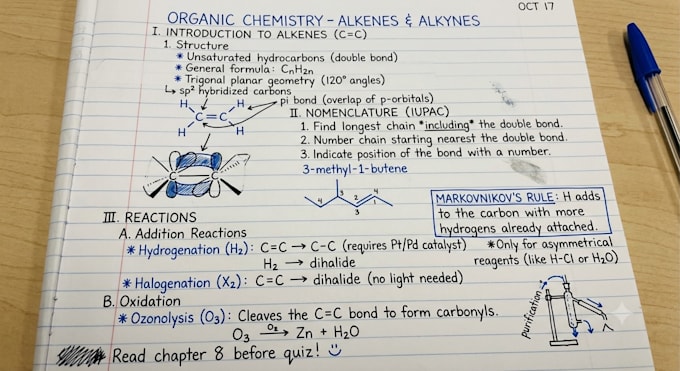 OCT 17
ORGANIC CHEMISTRY - ALKENES & ALKYNES
I. INTRODUCTION TO ALKENES (C=C)
1. Structure
* Unsaturated hydrocarbons (double bond)
* General formula: CnH2n
* Trigonal planar geometry (120° angles)
↳ sp² hybridized carbons
H H
C=C
H H
pi bond (overlap of p-orbitals)
C C
II. NOMENCLATURE (IUPAC)
1. Find longest chain *including* the double bond.
2. Number chain starting nearest the double bond.
3. Indicate position of the bond with a number.
3-methyl-1-butene
4 3 2 4
3 1
MARKOVNIKOV'S RULE: H adds
to the carbon with more
hydrogens already attached.
*Only for asymmetrical
reagents (like H-Cl or H₂O)
III. REACTIONS
A. Addition Reactions
* Hydrogenation (H₂): C=C → C-C (requires Pt/Pd catalyst)
H₂ → dihalide
* Halogenation (X₂): C=C → dihalide (no light needed)
B. Oxidation
* Ozonolysis (O₃): Cleaves the C=C bond to form carbonyls.
O₃ O₂ → Zn + H₂O
Purification
Read chapter 8 before quiz!